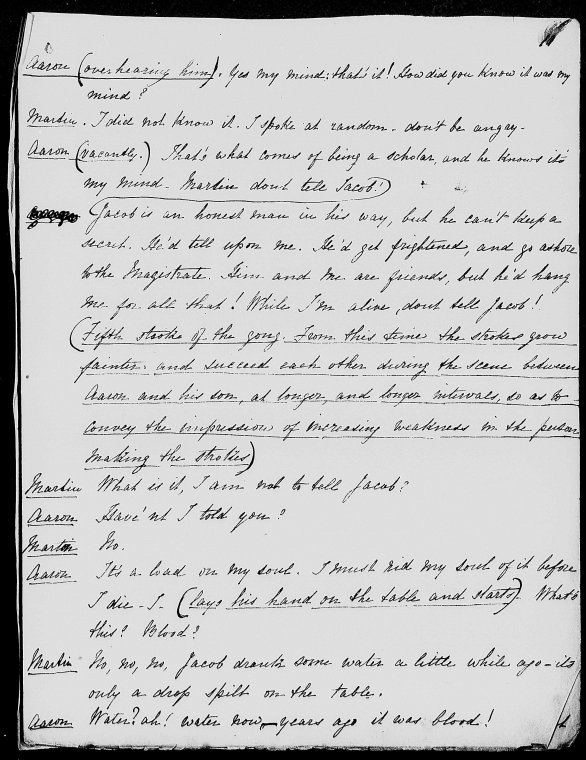 Aaron (overhearing him). Yes my mind: that's it! How did you know it was my
mind?
Martin. I did not know it. I spoke at random. don't be angry.
Aaron (vacantly.) That's what comes of being a scholar, and he knows it's
my mind. Martin dont tell Jacob!)
Jacob is an honest man in his way, but he can't keep a
secret. He'd tell upon me. He'd get frightened, and go ashore
to the Magistrate. Him and me are friends, but he'd hang
me for all that! While I'm alive, dont tell Jacob!
(Fifth stroke of the gong. From this time the strokes grow
fainter. and succeed each other during the scene between
Aaron and his son, at longer and longer intervals, so as to
convey the impression of increasing weakness in the person
making the strokes)
Martin What is it, I am not to tell Jacob?
Aaron Have'nt I told you?
Martin No.
Aaron It's a load on my soul. I must rid my soul of it before
I die - I - (lays his hand on the table and starts). What's
this? Blood?
Martin No, no, no, Jacob drank some water a little while ago - its
only a drop spilt on the table.
Aaron Water? ah! water now, - years ago it was blood!